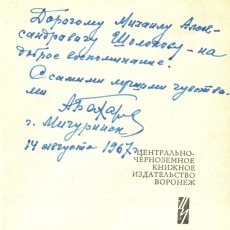 Дорогому Михаилу Алек-
сандровичу Шолохову - на
доброе воспоминание!
С самыми лучшими чувства-
ми
г. Мичуринск
14 августа 1967 г.
ЦЕНТРАЛЬНО-
ЧЕРНОЗЕМНОЕ
КНИЖНОЕ
ИЗДАТЕЛЬСТВО
ВОРОНЕЖ